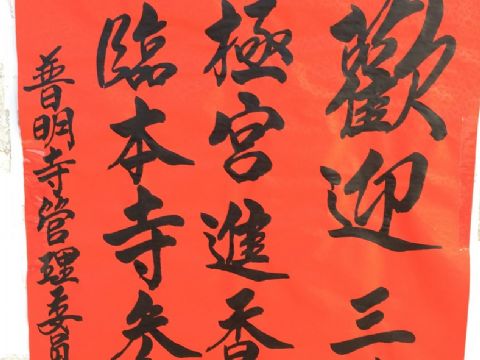 歡迎三
極宮進香
臨本寺參
普明寺管理委員